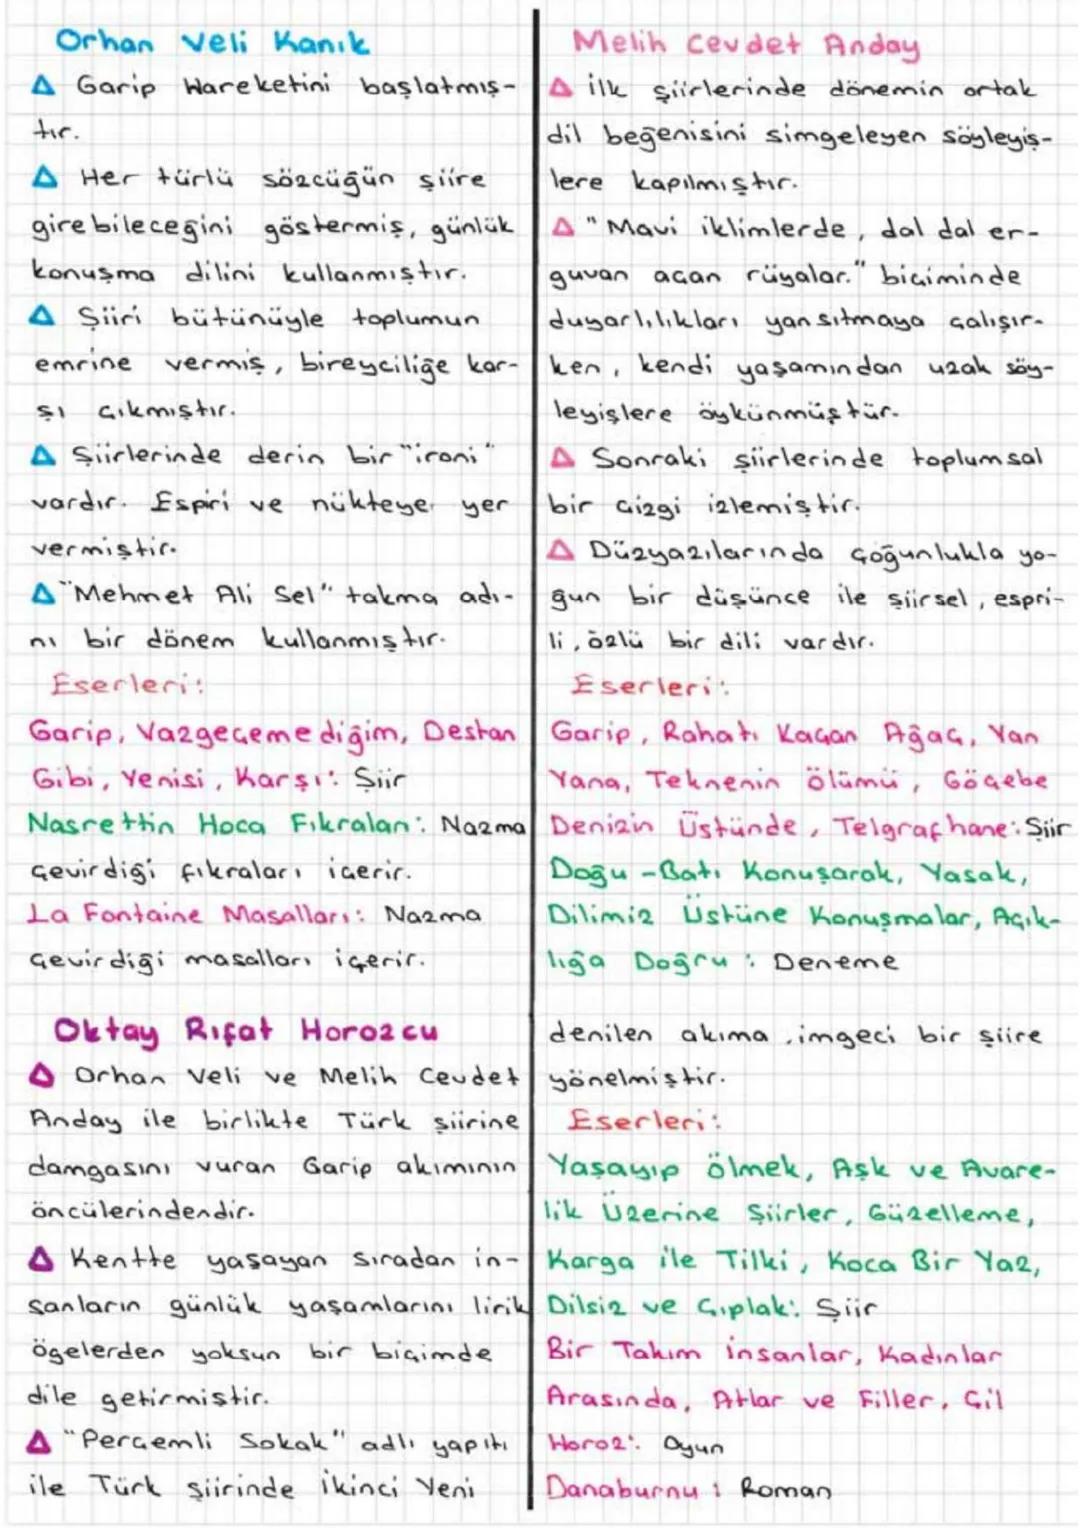 Orhan Veli Kanık
Δ Garip Hareketini başlatmış-
tır.
Δ Her türlü sözcüğün şiire
girebileceğini göstermiş, günlük
konuşma dilini kullanmıştır.
Δ Şiiri bütünüyle toplumun
emrine vermiş, bireyciliğe kar-
şı çıkmıştır.
Δ Şiirlerinde derin bir "ironi"
vardır. Espiri ve nükteye yer
vermiştir.
Δ "Mehmet Ali Sel" takma adı-
nı bir dönem kullanmıştır.
Eserleri:
Garip, Vazgeçemediğim, Destan
Gibi, Yenisi, Karşı: Şiir
Nasrettin Hoca Fıkraları: Nazma
çevirdiği fıkraları içerir.
La Fontaine Masalları: Nazma
çevirdiği masalları içerir.
Melih Cevdet Anday
Δ İlk şiirlerinde dönemin ortak
dil beğenisini simgeleyen söyleyiş-
lere kapılmıştır.
Δ "Mavi iklimlerde, dal dal er-
guvan açan rüyalar." biçiminde
duyarlılıkları yansıtmaya çalışır-
ken, kendi yaşamından uzak söy-
leyişlere öykünmüştür.
Δ Sonraki şiirlerinde toplumsal
bir çizgi izlemiştir.
Δ Düzyazılarında çoğunlukla yo-
ğun bir düşünce ile şiirsel, espri-
li, özlü bir dili vardır.
Eserleri:
Garip, Rahatı Kaçan Ağaç, Yan
Yana, Teknenin Ölümü, Göçebe
Denizin Üstünde, Telgrafhane: Şiir
Doğu-Batı Konuşarak, Yasak,
Dilimiz Üstüne Konuşmalar, Açık-
lığa Doğru: Deneme
Oktay Rıfat Horozcu
Δ Orhan Veli ve Melih Cevdet
Anday ile birlikte Türk şiirine
damgasını vuran Garip akımının
öncülerindendir.
Δ Kentte yaşayan sıradan in-
sanların günlük yaşamlarını lirik
ögelerden yoksun bir biçimde
dile getirmiştir.
Δ "Perçemli Sokak" adlı yapıtı
ile Türk şiirinde İkinci Yeni
denilen akıma, imgeci bir şiire
yönelmiştir.
Eserleri:
Yaşayıp Ölmek, Aşk ve Avare-
lik Üzerine Şiirler, Güzelleme,
Karga ile Tilki, Koca Bir Yaz,
Dilsiz ve Çıplak: Şiir
Bir Takım İnsanlar, Kadınlar
Arasında, Atlar ve Filler, Çil
Horoz: Oyun
Danaburnu: Roman